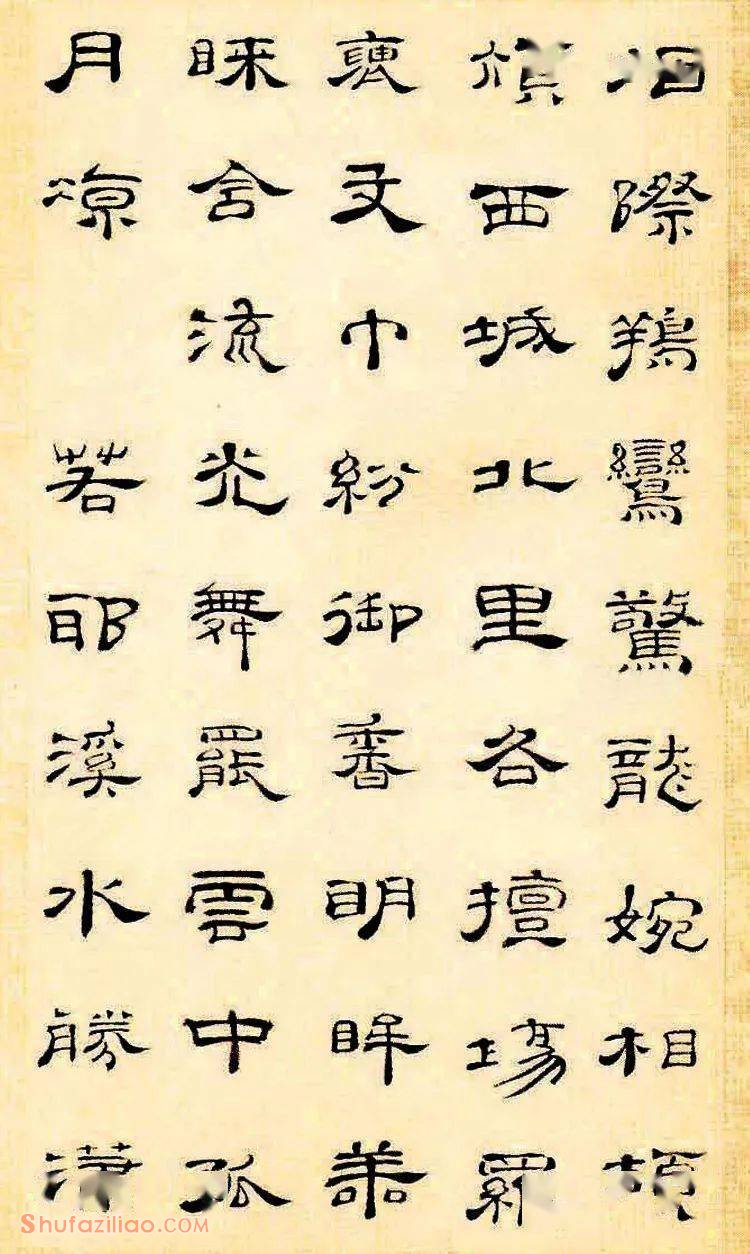 際鸞驚龍婉相頡
頏西城北里各擅場羅
文巾紛御香明眸善
睞含流光舞罷雲中孤
月涼 若耶溪水勝瀟
Shufaziliao.com